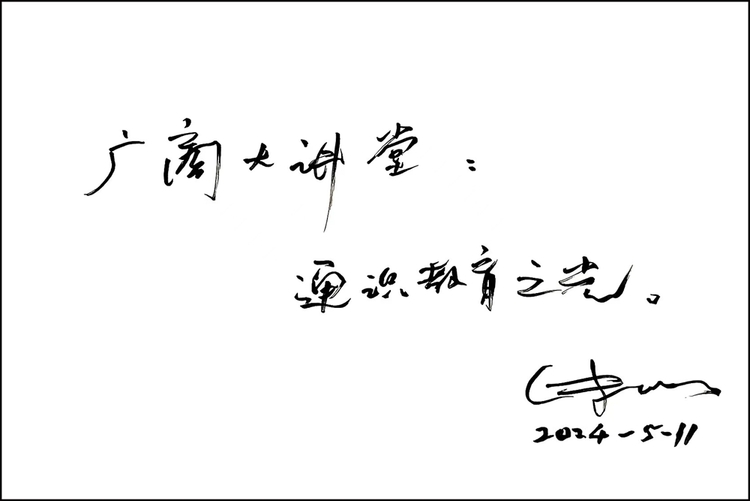 广商大讲堂：
通识教育之光。
2024-5-11